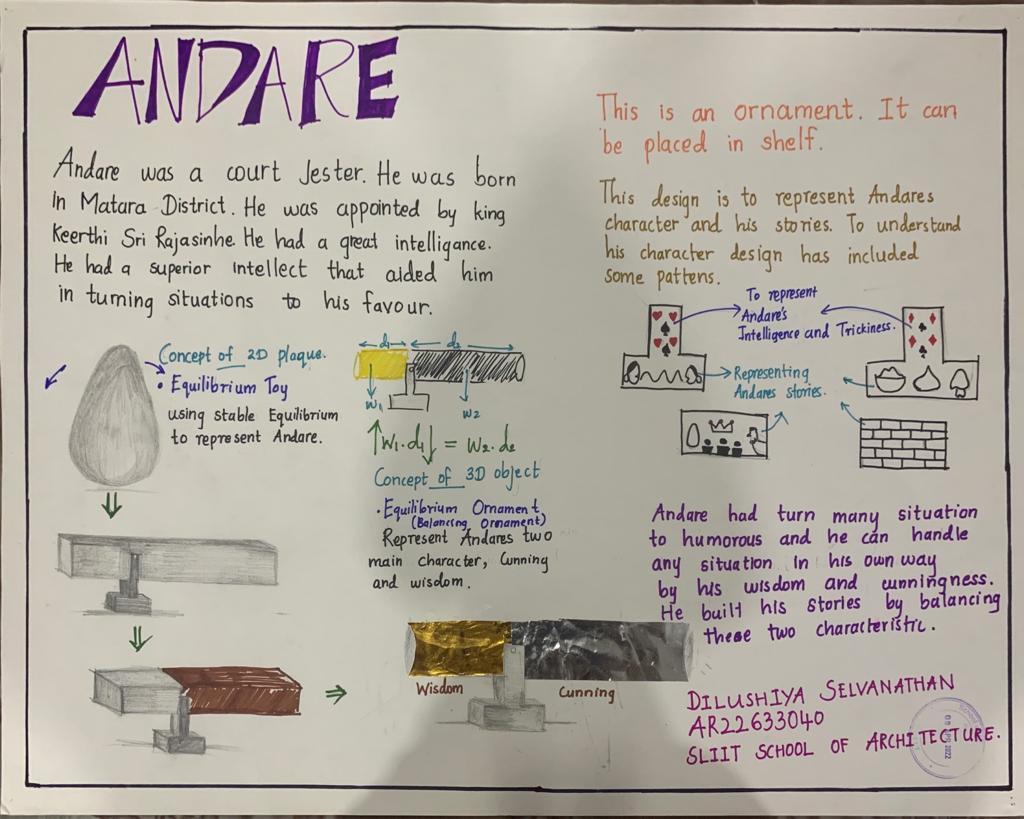 ANDARE
Andare was a court Jester. He was born
in Matara District. He was appointed by king
Keerthi Sri Rajasinhe. He had a great intelligance.
He had a superior intellect that aided him
in turning situations to his favour.
Concept of 2D plaque.
• Equilibrium Toy
using stable Equilibrium
to represent Andare.
d₁ d₂
W₁ W₂
W₁.d₁ = W₂.d₂
Concept of 3D object
• Equilibrium Ornament
(Balancing Ornament)
Represent Andares two
main character, Cunning
and wisdom.
Wisdom Cunning
This is an ornament. It can
be placed in shelf.
This design is to represent Andares
character and his stories. To understand
his character design has included
some pattens.
To represent
Andare's
Intelligence and Trickiness.
Representing
Andares stories.
Andare had turn many situation
to humorous and he can handle
any situation in his own way
by his wisdom and cunningness.
He built his stories by balancing
these two characteristic.
DILUSHIYA SELVANATHAN
AR22633040
SLIIT SCHOOL OF ARCHITECTURE.
2022